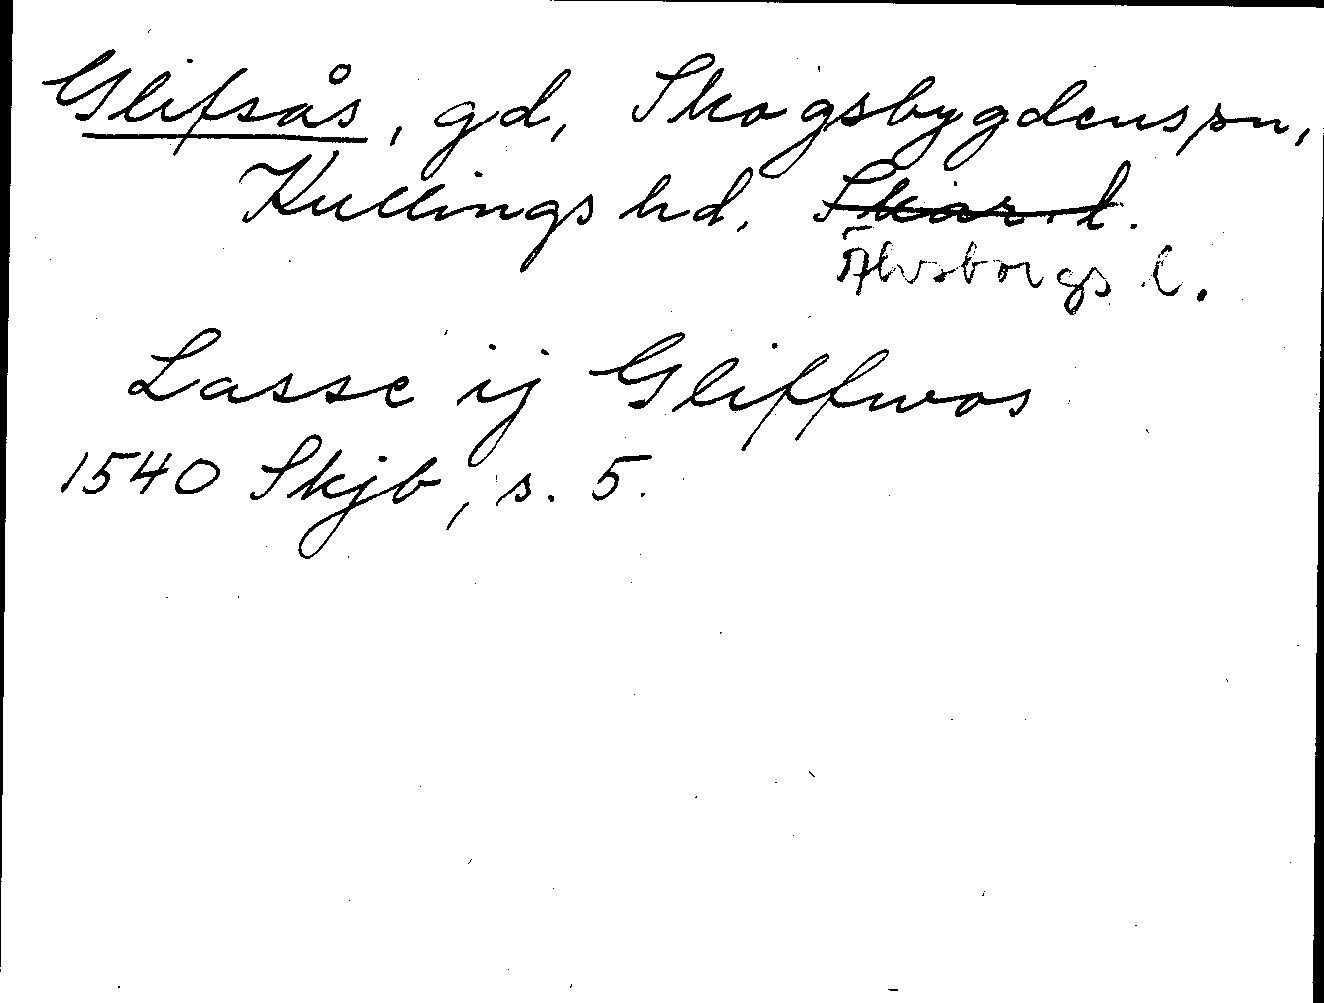 Glifsås, gd, Skogsbygdens sn,
Kullings hd, Skar. l.
Älvsborgs l.
Lasse ij Gliffwos
1540 Skjb, s. 5.